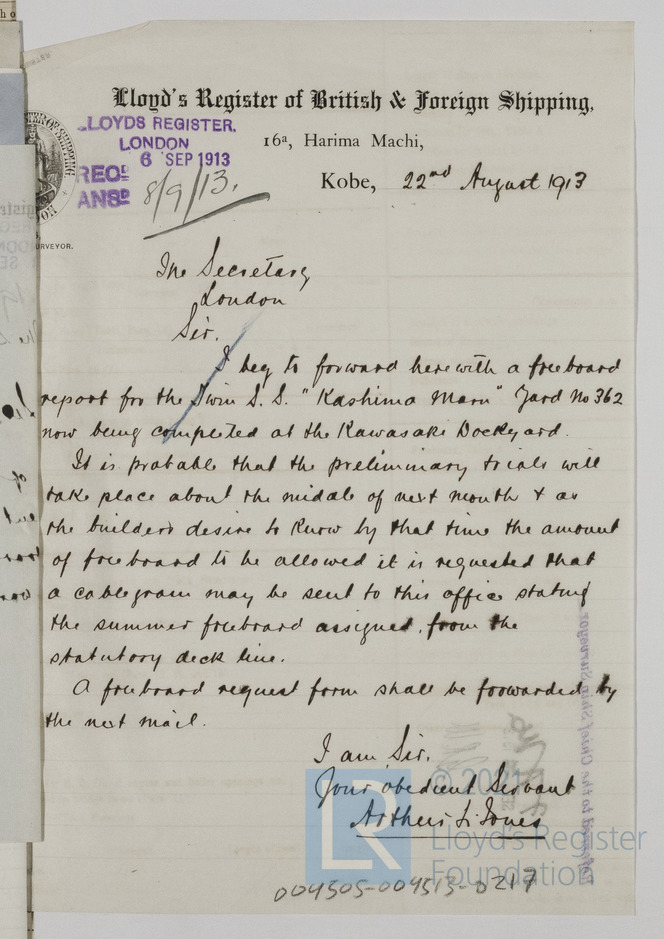 Lloyd's Register of British & Foreign Shipping,
LLOYDS REGISTER.
LONDON
6 SEP 1913
RECD
ANSD
8/9/13.
16a, Harima Machi,
Kobe, 22nd August 1913
URVEYOR.
The Secretary
London
Sir.
I beg to forward herewith a freeboard
report for the Twin S.S. "Kashima Maru" Yard No 362
now being completed at the Kawasaki Dockyard.
It is probable that the preliminary trials will
take place about the middle of next month & as
the builders desire to know by that time the amount
of freeboard to be allowed it is requested that
a cablegram may be sent to this office stating
the summer freeboard assigned, from the
statutory deck line.
A freeboard request form shall be forwarded by
the next mail.
I am Sir.
Your obedient Servant
Arthur L. Jones
© 2021
LR
Lloyd's Register
Foundation
004505-004513-0217